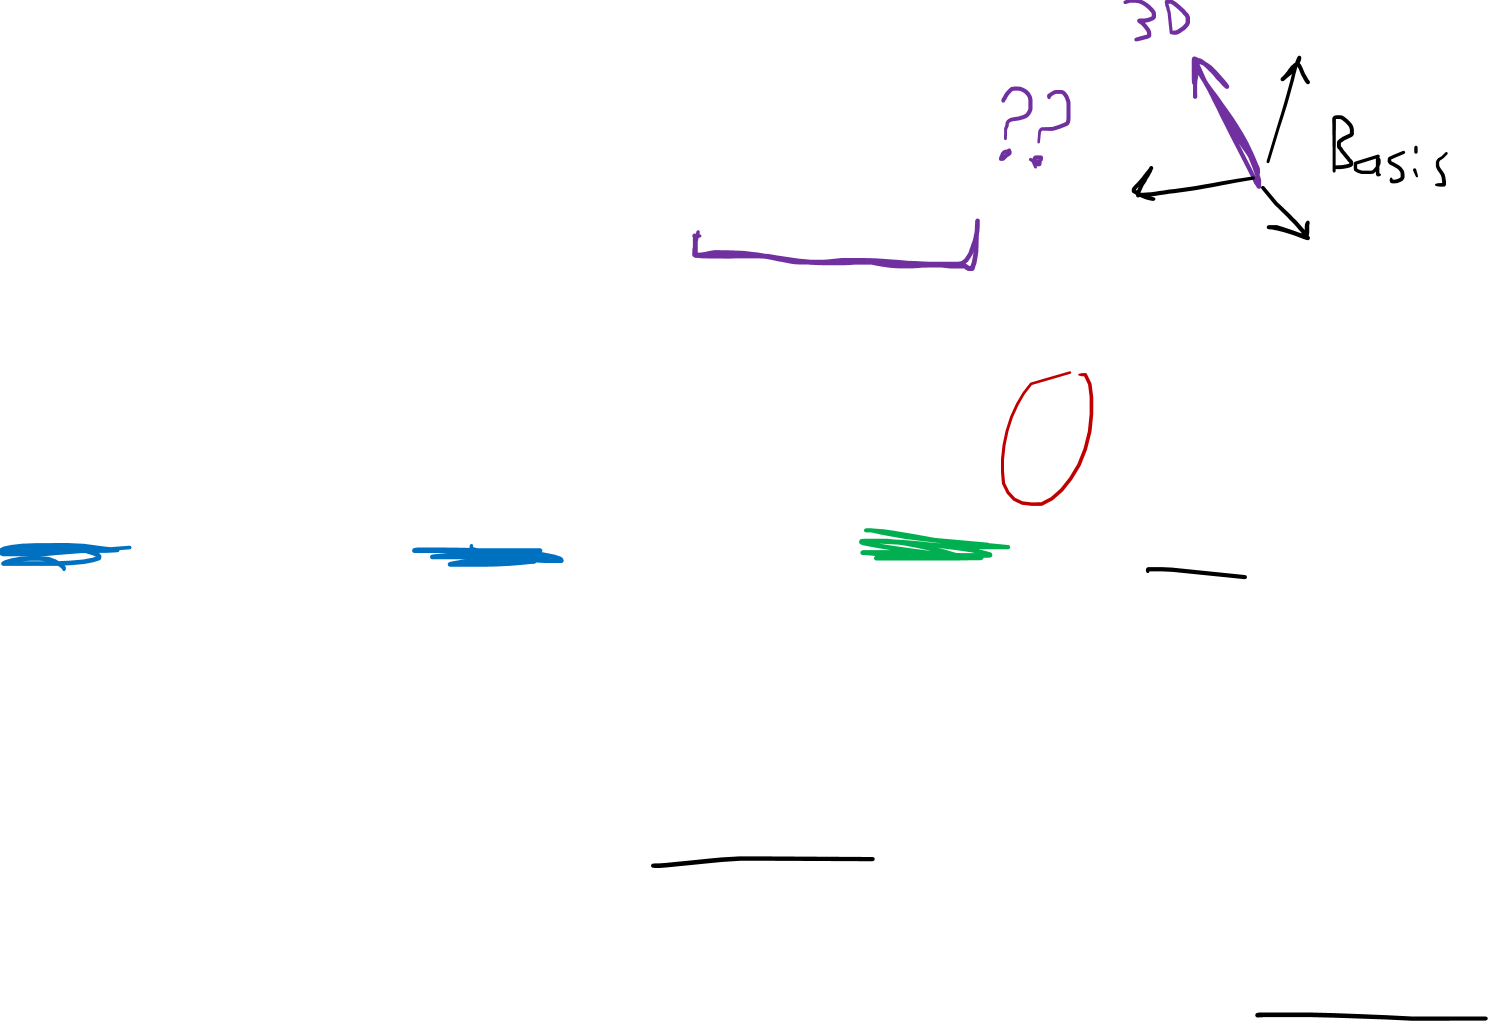 3D
??
Basis